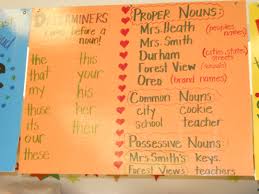 DETERMINERS
comes before
a noun!
the this
that your
my his
those her
its their
our
these
PROPER NOUNS:
Mrs. Heath (peoples names)
Mrs. Smith
Durham (cities, states, streets)
Forest View
Oreo (brand names)
Common Nouns:
city cookie
school teacher
Possessive Nouns:
Mrs. Smith's keys.
Forest View's teachers